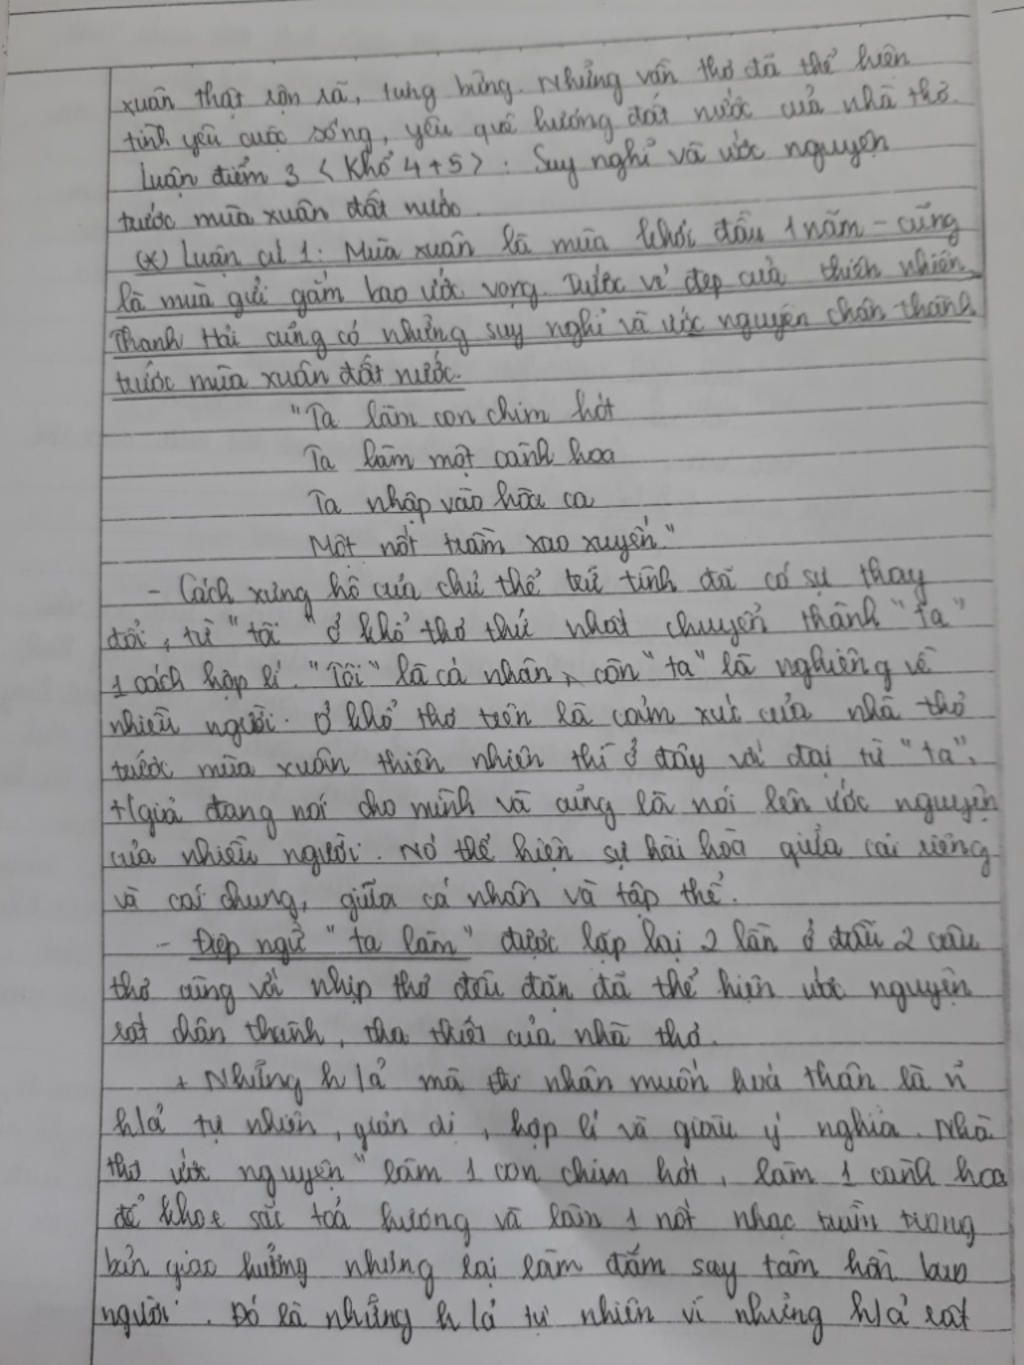 xuân thật rộn rã, tưng bừng. Những vần thơ đã thể hiện
tình yêu cuộc sống, yêu quê hương đất nước của nhà thơ.
Luận điểm 3 < Khổ 4+5 > : Suy nghĩ và ước nguyện
trước mùa xuân đất nước.
(*) Luận cứ 1: Mùa xuân là mùa khởi đầu 1 năm - cũng
là mùa gửi gắm bao ước vọng. Trước vẻ đẹp của thiên nhiên,
Thanh Hải cũng có những suy nghĩ và ước nguyện chân thành
trước mùa xuân đất nước.
"Ta làm con chim hót
Ta làm một cành hoa
Ta nhập vào hòa ca
Một nốt trầm xao xuyến."
- Cách xưng hô của chủ thể trữ tình đã có sự thay
đổi, từ "tôi" ở khổ thơ thứ nhất chuyển thành "ta"
1 cách hợp lí. "Tôi" là cá nhân, còn "ta" là nghiêng về
nhiều người. Ở khổ thơ trên là cảm xúc của nhà thơ
trước mùa xuân thiên nhiên thì ở đây với đại từ "ta",
t/giả đang nói cho mình và cũng là nói lên ước nguyện
của nhiều người. Nó thể hiện sự hài hòa giữa cái riêng
và cái chung, giữa cá nhân và tập thể.
- Điệp ngữ "ta làm" được lặp lại 2 lần ở đầu 2 câu
thơ cùng với nhịp thơ đều đặn đã thể hiện ước nguyện
rất chân thành, tha thiết của nhà thơ.
+ Những h/ả mà thi nhân muốn hoá thân là n~
h/ả tự nhiên, giản dị, hợp lí và giàu ý nghĩa. Nhà
thơ ước nguyện "làm 1 con chim hót, làm 1 cành hoa
để khoe sắc toả hương và làm 1 nốt nhạc trầm trong
bản giao hưởng nhưng lại làm đắm say tâm hồn bao
người. Đó là những h/ả tự nhiên vì những h/ả rất